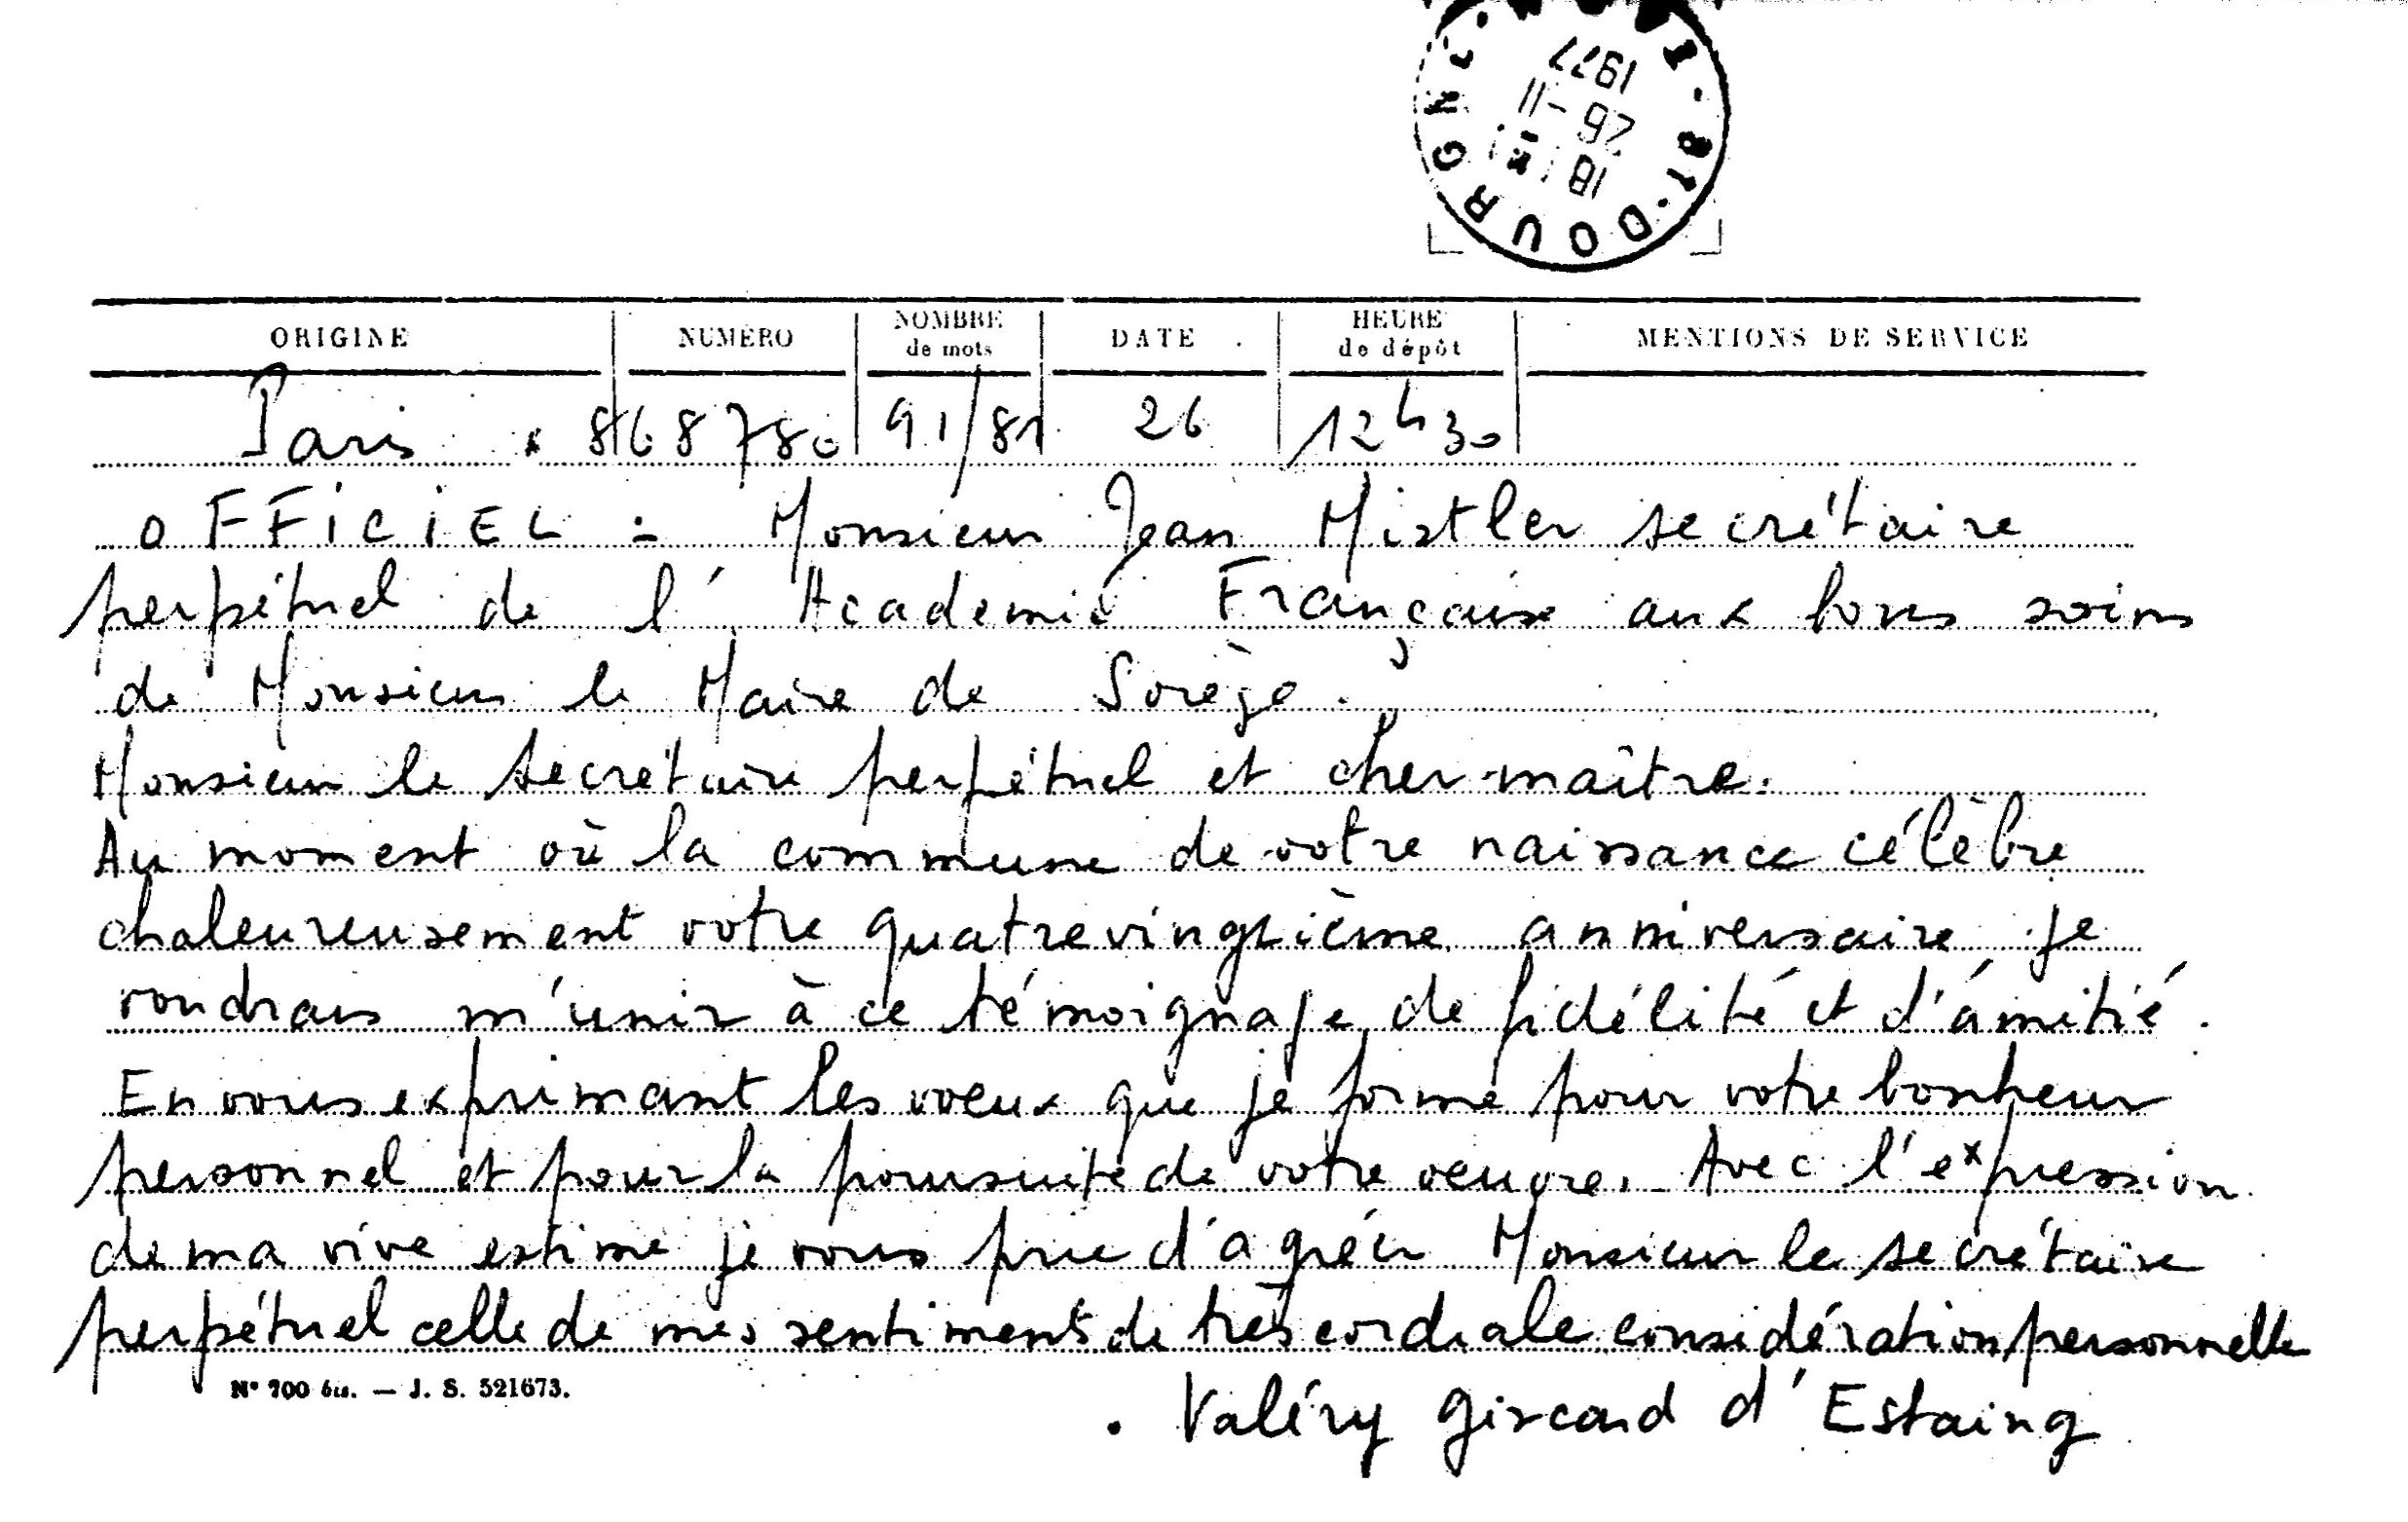 81-DOURGNE
18H
26-11
1977
ORIGINE NUMÉRO NOMBRE de mots DATE HEURE de dépôt MENTIONS DE SERVICE
Paris 868780 91/81 26 12h30
OFFICIEL = Monsieur Jean Mistler secrétaire
perpétuel de l'Academie Française aux bons soins
de Monsieur le Maire de Sorèze.
Monsieur le secrétaire perpétuel et cher maître.
Au moment où la commune de votre naissance célèbre
chaleureusement votre quatrevingtième anniversaire je
voudrais m'unir à ce témoignage de fidélité et d'amitié.
En vous exprimant les voeux que je forme pour votre bonheur
personnel et pour la poursuite de votre oeuvre. Avec l'expression
de ma vive estime je vous prie d'agréer Monsieur le secrétaire
perpétuel celle de mes sentiments de très cordiale considération personnelle
N° 700 bis. — J. S. 521673.
. Valéry giscard d'Estaing